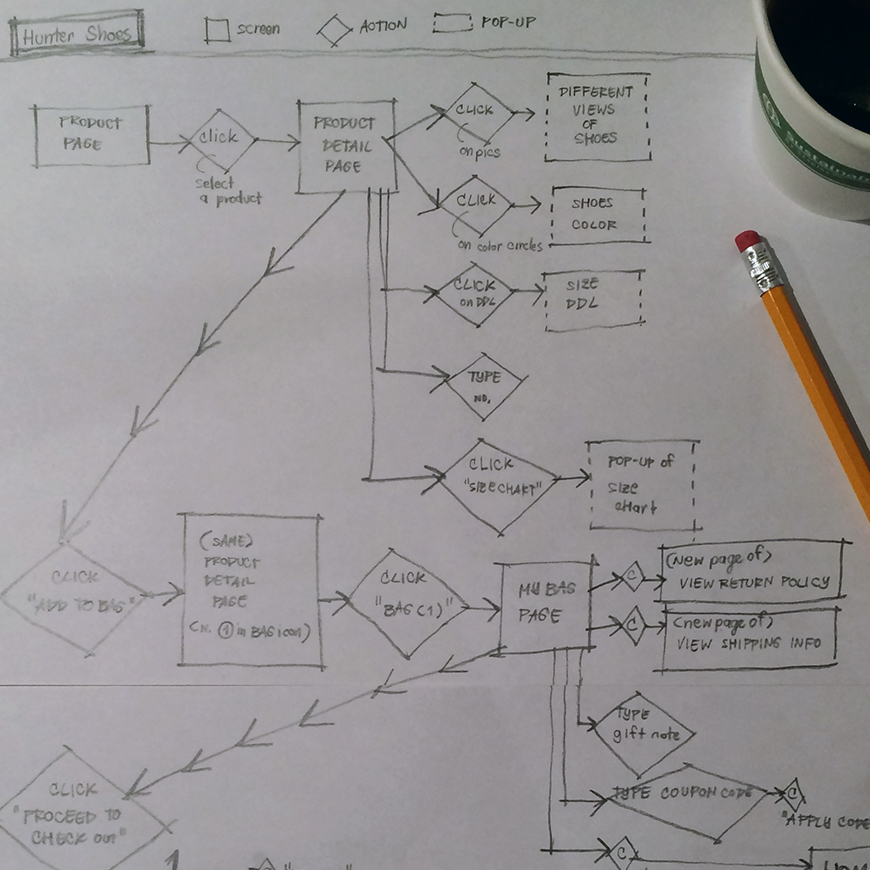 Hunter Shoes
screen
ACTION
POP-UP
PRODUCT
PAGE
click
select
a product
PRODUCT
DETAIL
PAGE
CLICK
on pics
DIFFERENT
VIEWS
OF
SHOES
CLICK
on color circles
SHOES
COLOR
CLICK
on DDL
SIZE
DDL
TYPE
NO.
CLICK
"SIZE CHART"
POP-UP of
SIZE
CHart
CLICK
"ADD TO BAG"
(SAME)
PRODUCT
DETAIL
PAGE
(w. 1 in BAG icon)
CLICK
"BAG (1)"
MY BAG
PAGE
C
(New page of)
VIEW RETURN POLICY
C
(new page of)
VIEW SHIPPING INFO
TYPE
gift note
TYPE COUPON CODE
C
"APPLY CODE
C
CLICK
"PROCEED TO
CHECK OUT"